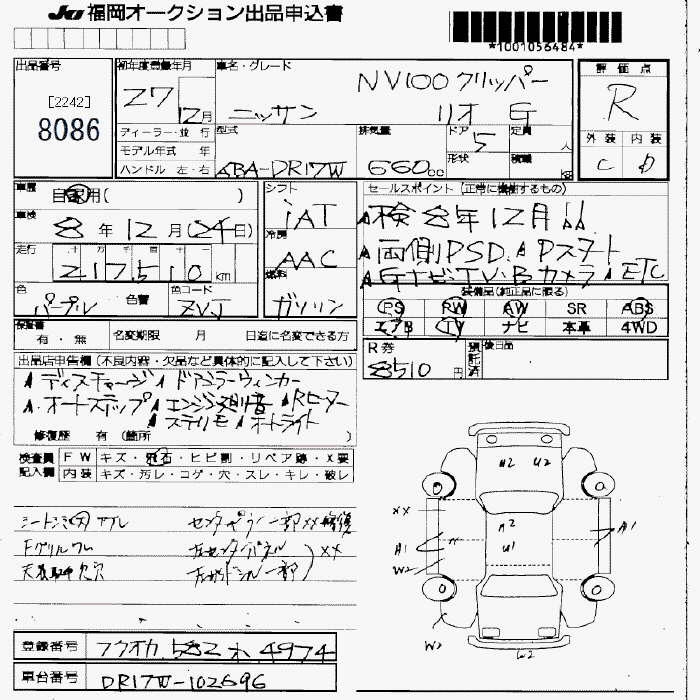 JU 福岡オークション出品申込書
*1001056484*
出品番号 [2242] 8086
初年度登録年月 27 12月
車名・グレード NV100 クリッパー
ニッサン リオ G
評価点 R
外装 内装
C D
ディーラー・並行
モデル年式 年
ハンドル 左・右
型式 ABA-DR17W
排気量 660cc
ドア 5
形状
定員 人
積載 KG
車歴 自家用( )
車検 8年12月(24日)
走行 十万千百十
217510 km
色 パープル 色替
色コード ZVJ
シフト iAT
冷房 AAC
燃料 ガソリン
セールスポイント(正常に機能するもの)
▲検 8年12月!!
▲両側PSD ▲Pスタート
▲GナビTV・Bカメラ ▲ETC
装備品(純正品に限る)
PS RW AW SR ABS
エアB TV ナビ 本革 4WD
保証書 有・無
名変期限 月 日迄に名変できる方
R券 8510円 預託済
後日品
出品店申告欄(不良内容・欠品など具体的に記入して下さい)
▲ディスチャージ ▲ドアミラーウィンカー
▲オートステップ ▲エンジン異音 ▲Rヒーター
▲ステリモ ▲オートライト
修復歴 有(箇所 )
検査員記入欄
FW キズ・飛石・ヒビ割・リペア跡・X要
内装 キズ・汚レ・コゲ・穴・スレ・キレ・破レ
センターピラー一部XX修復
Fグリルワレ
XX
A2 U2
XX
A2
A1 U1 A1
W2
W2 W2
登録番号 フクオカ 582 ホ 4974
車台番号 DR17W-102696